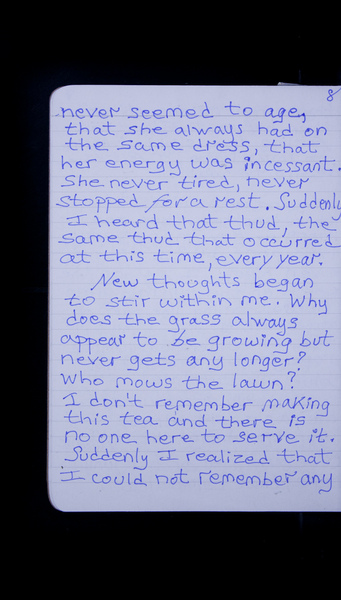 8
never seemed to age,
that she always had on
the same dress, that
her energy was incessant.
She never tired, never
stopped for a rest. Suddenly
I heard that thud, the
same thud that occurred
at this time, every year.
New thoughts began
to stir within me. Why
does the grass always
appear to be growing but
never gets any longer?
Who mows the lawn?
I don't remember making
this tea and there is
no one here to serve it.
Suddenly I realized that
I could not remember any